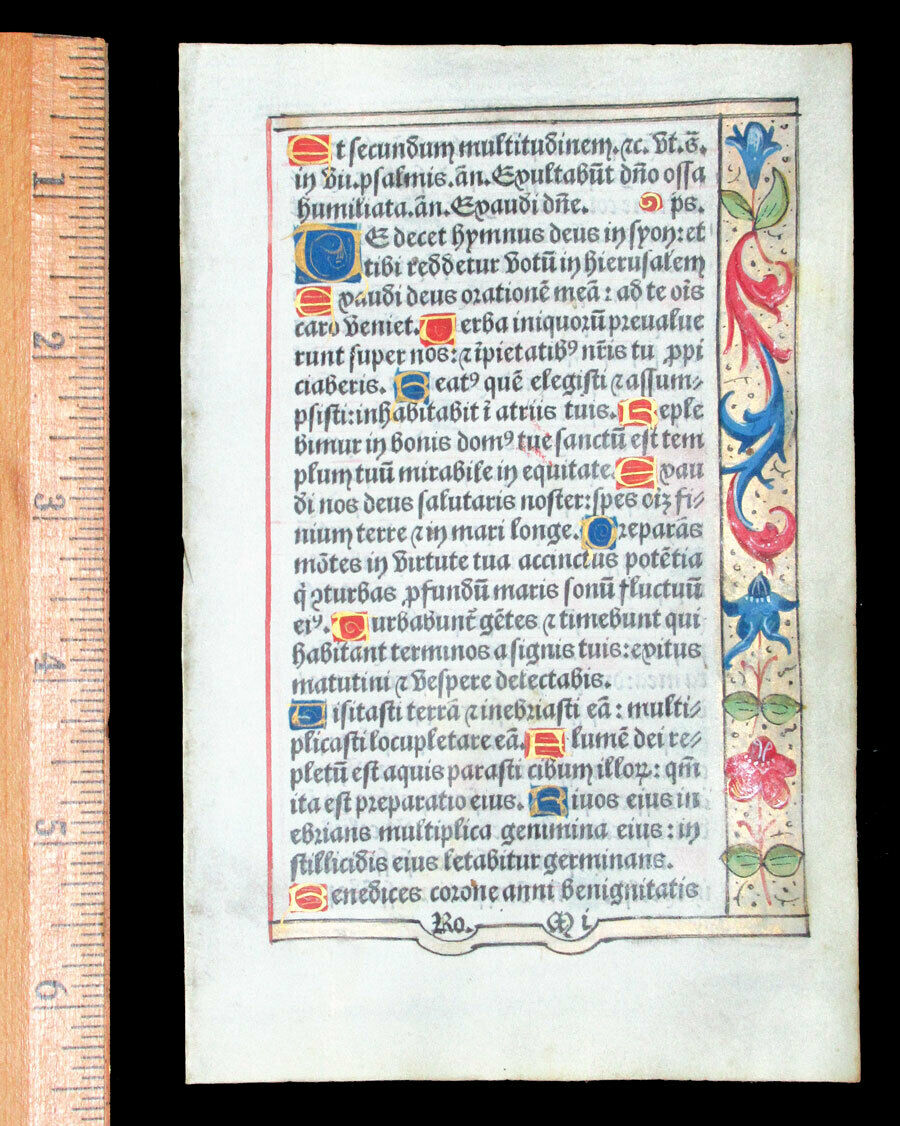 Et secundum multitudinem. ⁊c. Vt. s̄.
in vii. psalmis. añ. Exultabūt dño ossa
humiliata. añ. Exaudi dñe. ps.
TE decet hymnus deus in syon: et
tibi reddetur votū in hierusalem
Exaudi deus orationē meā: ad te oīs
caro veniet. Verba iniquorū preualue
runt super nos: ⁊ īpietatibꝰ nr̄is tu ꝓpi
ciaberis. Beatꝰ quē elegisti ⁊ assum-
psisti: inhabitabit ī atriis tuis. Reple
bimur in bonis domꝰ tue sanctū est tem
plum tuū mirabile in equitate. Exau
di nos deus salutaris noster: spes oīꝫ fi-
nium terre ⁊ in mari longe. Preparās
mōtes in virtute tua accinctus potētia
q̇ ꝯturbas ꝓfundū maris sonū fluctuū
eiꝰ. Turbabunt gētes ⁊ timebunt qui
habitant terminos a signis tuis: exitus
matutini ⁊ vespere delectabis.
Visitasti terrā ⁊ inebriasti eā: multi-
plicasti locupletare eā. Flumē dei re-
pletū est aquis parasti cibum illoꝝ: qm̄
ita est preparatio eius. Riuos eius in
ebrians multiplica genimina eius: in
stillicidis eius letabitur germinans.
Benedices corone anni benignitatis
Ro. M i
1
2
3
4
5
6